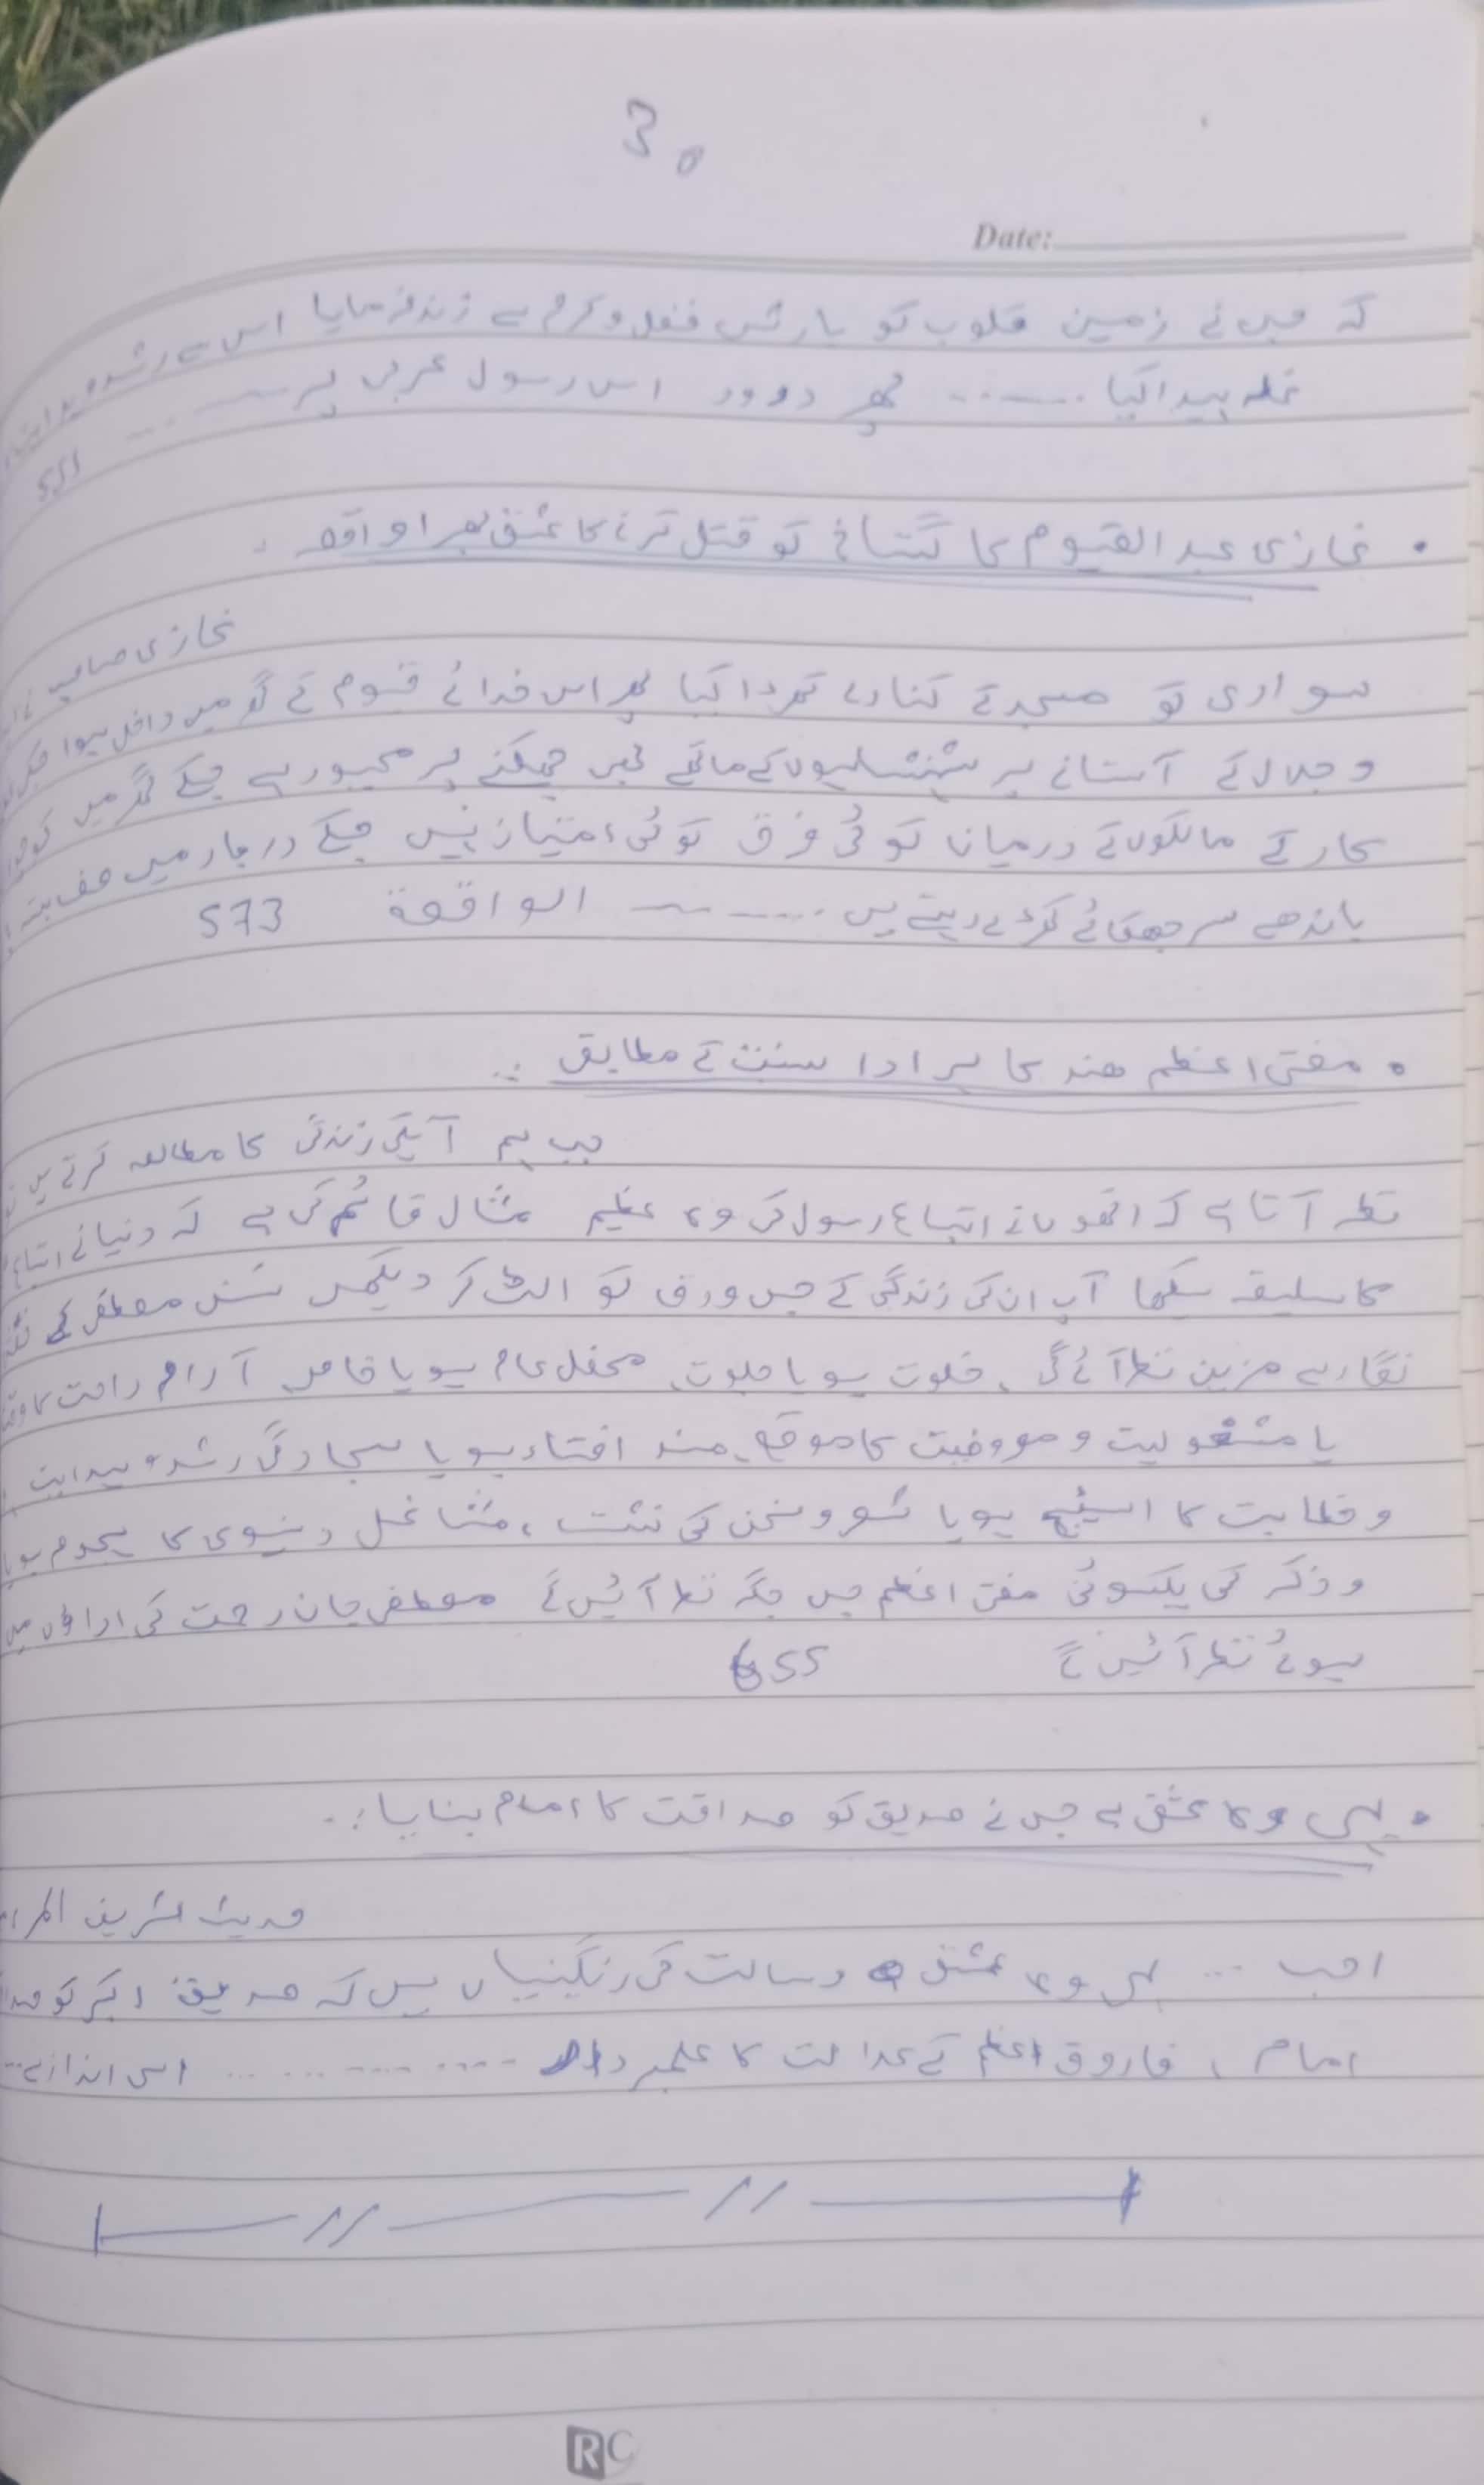 30
Date:
کہ جس نے زمین قلوب کو بارش فضل و کرم سے زندہ فرمایا اس سے رشد و
غلہ پیدا کیا ........ پھر درود اس رسول عربی پر ........
551
• غازی عبد القیوم کا گستاخ کو قتل کرنے کا عشق بھرا واقعہ
غازی صاحب نے
سواری کو مسجد کے کنارے کھڑا کیا پھر اس خدائے قیوم کے گھر میں داخل ہوا جسکے
و جلال کے آستانے پر شہنشاہوں کے ماتھے بھی جھکنے پر مجبور ہے جسکے گھر میں
کار کے مالکوں کے درمیان کوئی فرق کوئی امتیاز نہیں جسکے دربار میں صف بستہ
باندھے سر جھکائے کھڑے رہتے ہیں ........ الواقعة 573
• مفتی اعظم ھند کا ہر ادا سنت کے مطابق :.
جب ہم آپکی زندگی کا مطالعہ کرتے ہیں
نظر آتا ہے کہ انھوں نے اتباع رسول کی وہ عظیم مثال قائم کی ہے کہ دنیا نے اتباع
کا سلیقہ سیکھا آپ ان کی زندگی کے جس ورق کو الٹ کر دیکھیں سنن مصطفی کے
نگار سے مزین نظر آئے گی ، خلوت ہو یا جلوت، محفل عام ہو یا خاص، آرام راحت کا
یا مشغولیت و مصروفیت کا موقع، مسند افتاء ہو یا سجادگی رشد و ہدایت
و خطابت کا اسٹیج ہو یا شعر و سخن کی نشست ، مشاغل دنیوی کا ہجوم ہو یا
و ذکر کی یکسوئی مفتی اعظم جس جگہ نظر آئیں گے مصطفی جان رحمت کی اداؤں میں
ہوئے نظر آئیں گے 655
• یہی وہ عشق ہے جس نے صدیق کو صداقت کا امام بنایا :.
حدیث شریف المرء
احب ... یہی وہ عشق رسالت کی رنگینیاں ہیں کہ صدیق اکبر کو
امام ، فاروق اعظم کے عدالت کا علمبردار ........ اس انداز سے...
RC